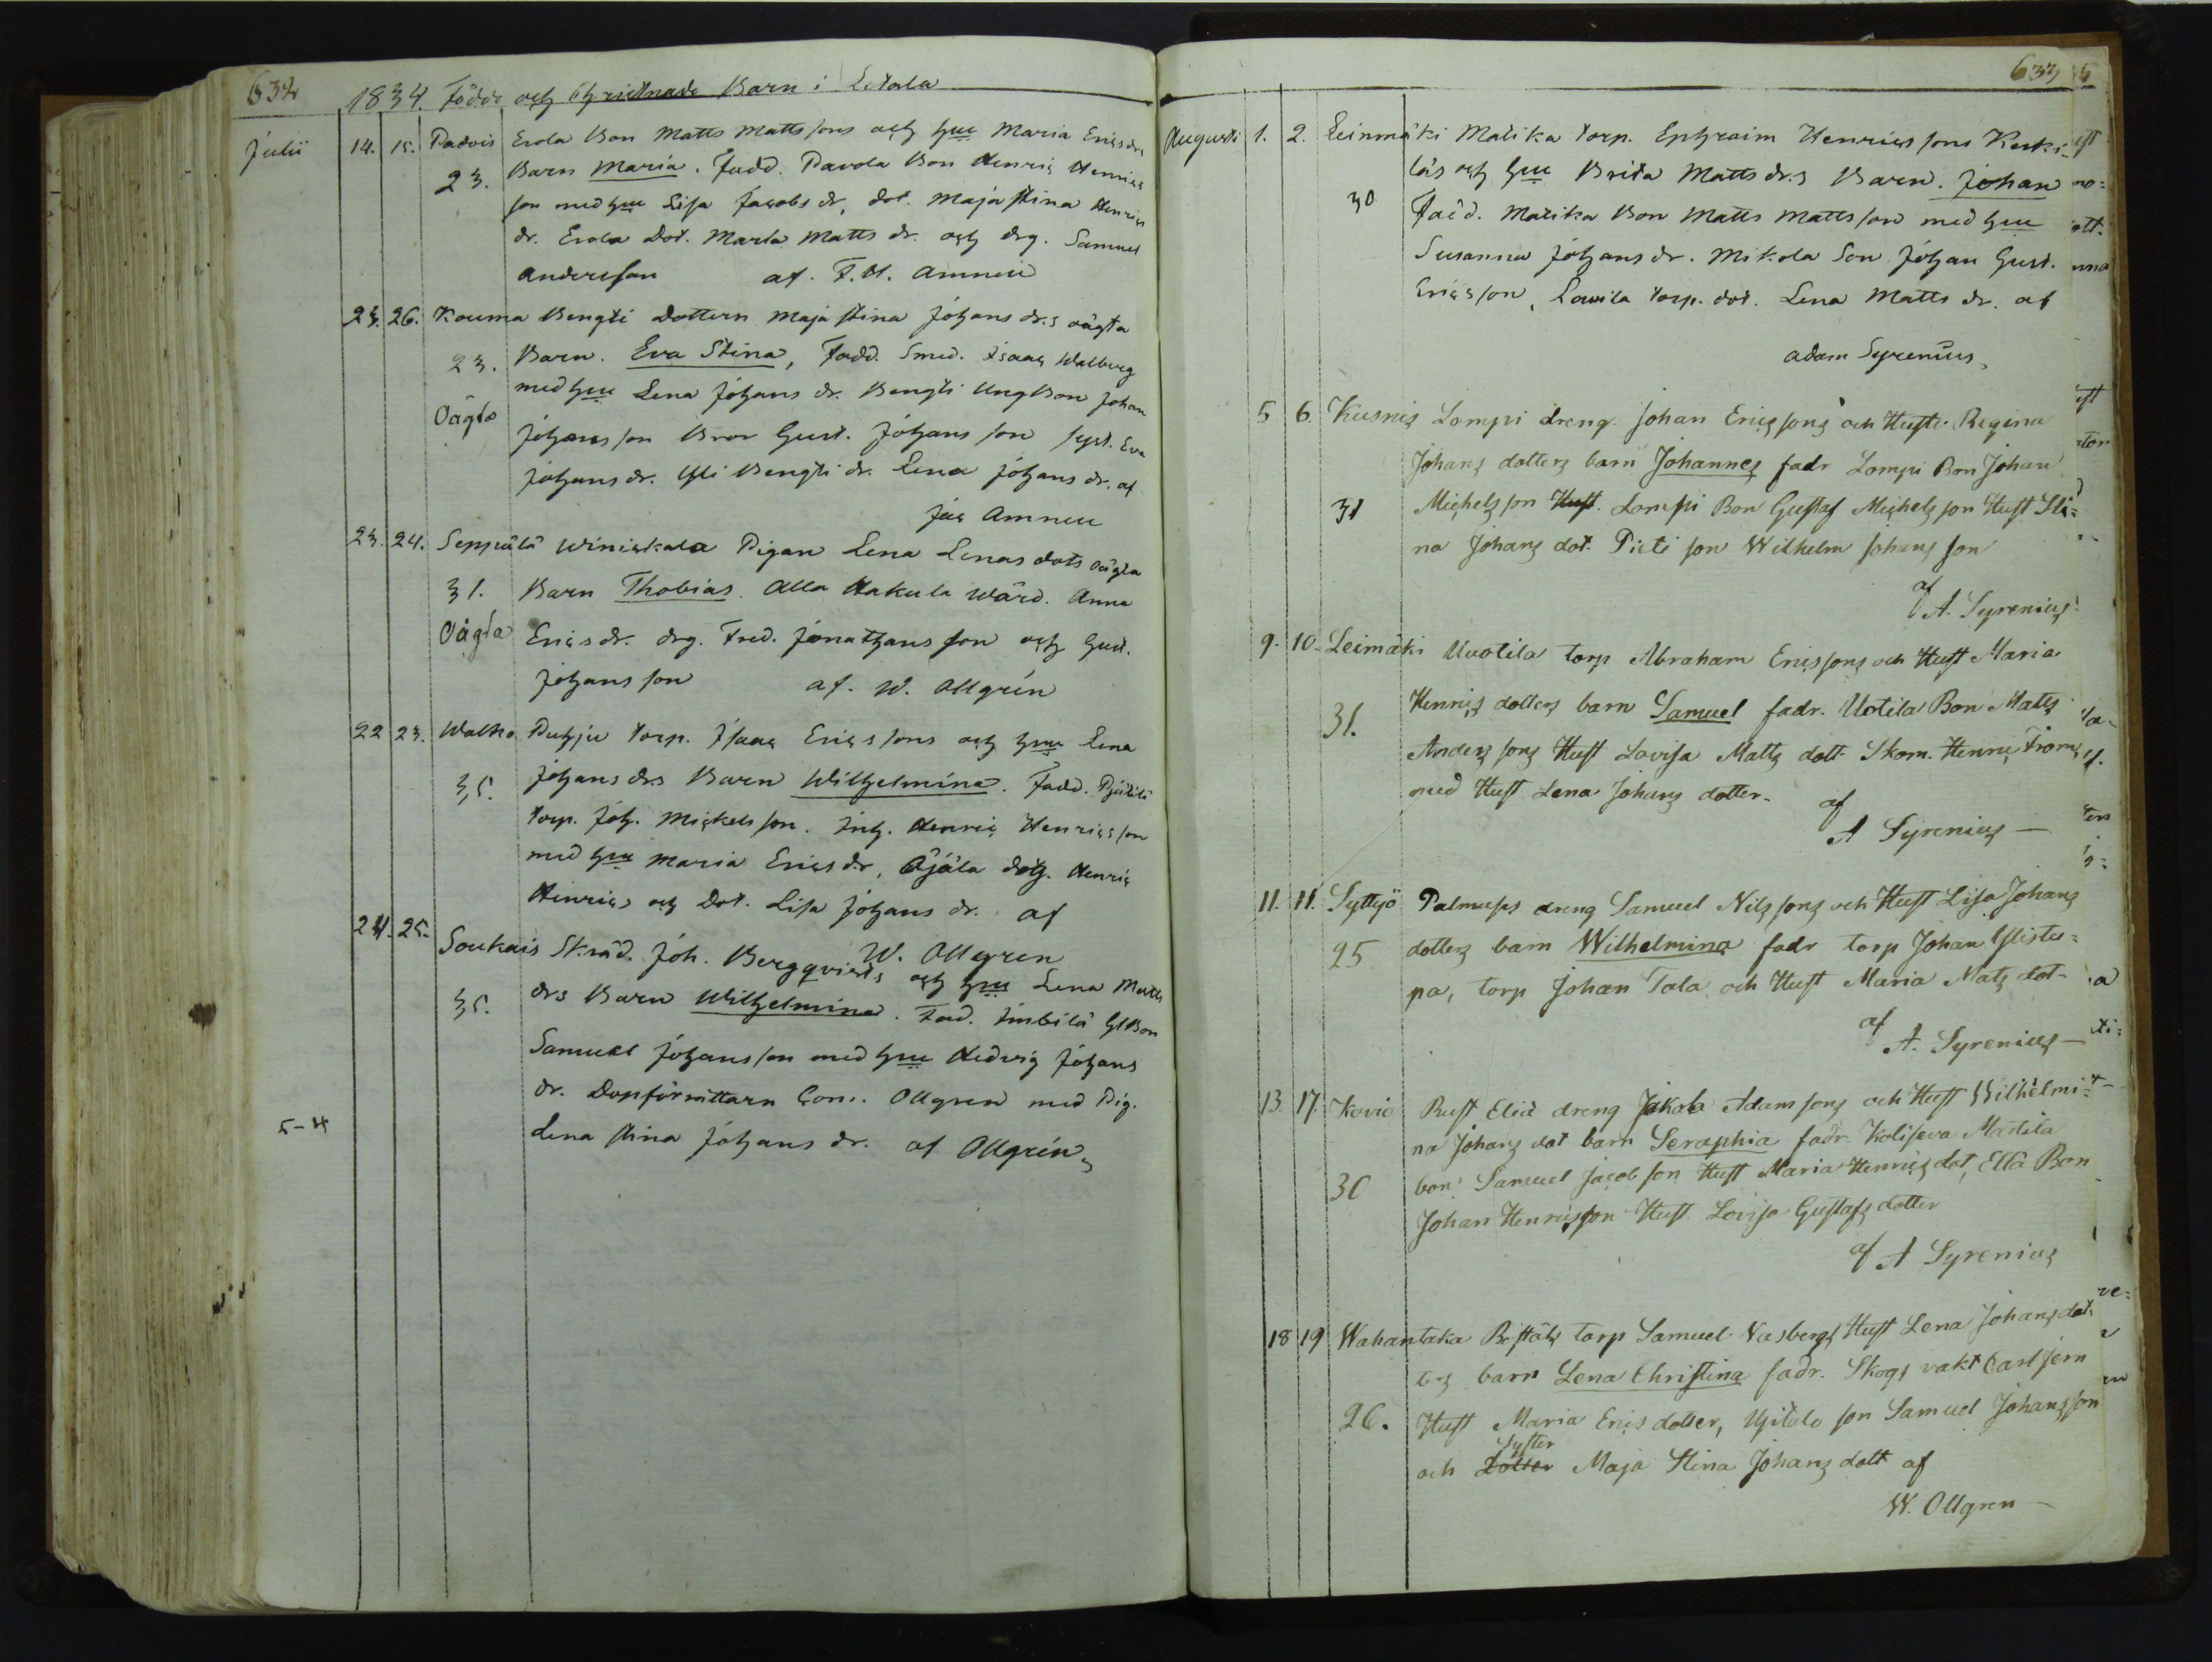 632
1834. Födde och Christnade Barn i Letala
Julii 14. 15. Padois Erola Bon Matts Mattssons och hu Maria Ericsdrs
23. Barn Maria. Fadd. Pavola Bon Henric Henrics
son med hu Lisa Jacobs dr, dot. Maja Stina Henrics
dr. Erola Dot. Marta Matts dr. och drg. Samuel
Andersson af. F. H. Amneu
25. 26. Kouma Bengti Dottern Maja Stina Johans drs oägta
23. Barn. Eva Stina, Fadd. Smed. Isaac Walberg
Oägta med hu Lena Johans dr. Bengti Ung Bon Johan
Johansson Bror Gust. Johansson syst. Eva
Johans dr. Yli Bengti dr. Lena Johans dr. af
Jac Amneu
23. 24. Seppälä Winickala Pigan Lena Lenas dots oägta
31. Barn Thobias. Alla Hakula Wärd. Anna
Oägta Erics dr. drg. Fred. Jonathansson och Gust.
Johansson af. W. Ollgrén
22 23. Walko Puhju torp. Isaac Ericssons och hu Lena
35. Johans drs Barn Wilhelmina. Fadd.
torp. Joh. Mickelsson. Inh. Henric Henricsson
med hu Maria Erics dr, Äjäla Henric
Henrics och Dot. Lisa Johans dr. af
W. Ollgren
24. 25. Soukais Skräd. Joh. Bergqvists och hu Lena Matts
35. drs Barn Wilhelmina. Fad. Bon
Samuel Johansson med hu Hedvig Johans
dr. Dopförrättarn Com. Ollgren med Pig.
5-4 Lena Stina Johans dr. af Ollgrén
633
Augusti 1. 2. Leinmäki Matika torp. Ephraim Henricssons Keski-
läs och hu Brita Matts drs Barn. Johan
30 Fadd. Matika Bon Matts Mattsson med hu
Susanna Johans dr. Mikola Son Johan Gust.
Ericsson, Lauila torp. dot. Lena Matts dr. af
Adam Syrenius,
5 6. Kusnis Lompi dreng. Johan Ericsons och Hustr. Regina
Johans dotters barn Johannes fadr Lompi Bon Johan
31 Michelsson Hust. Lompi Bon Gustaf Michelsson Hust Sti=
na Johans dot. Pieti son Wilhelm Johansson
af A. Syrenius
9. 10. Leimäki Uvotila torp Abraham Ericssons och Hust Maria
31. Henrics dotters barn Samuel fadr. Uotila Bon Matts
Anderssons Hust Lovisa Matts dott. Skom. Henric From
med Hust Lena Johans dotter. af
A Syrenius —
11. 11. Syttyö Palmusis dreng Samuel Nilssons och Hust Lisa Johans
25 dotters barn Wilhelmina fadr torp Johan Ylistu=
pa, torp Johan Tala och Hust Maria Mats dot-
af A. Syrenius —
13. 17. Kovio Rust Eliä dreng Jakob Adamssons och Hust Wilhelmi=
na Johans dot barn Seraphia fadr. Koliseva Mattila
30 bon Samuel Jacobson Hust Maria Henrics dot, Ellä Bon
Johan Henricsson Hust Lovisa Gustafs dotter
af A Syrenius
18 19 Wahantaka Boställs torp Samuel Vasbergs Hust Lena Johans dot
ters barn Lena Christina fadr. Skogs vakt Carl Jern
26. Hust Maria Erics dotter, Ylitalo son Samuel Johansson
Syster
och Dotter Maja Stina Johans dott af
W. Ollgren —